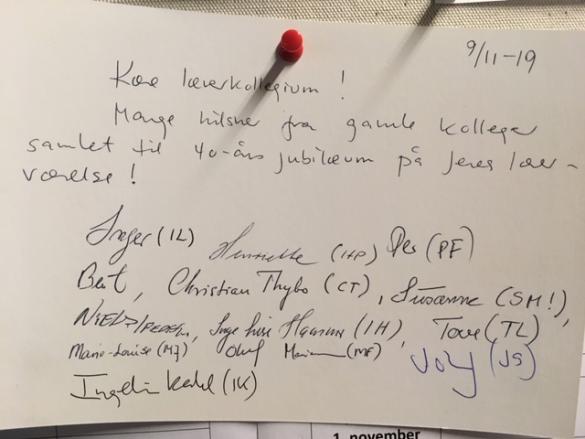 9/11-19
Kære lærerkollegium !
Mange hilsner fra gamle kolleger
samlet til 40-års jubilæum på Jeres lær-
værelse !
Inger (IL) Henriette (IHP) Per (PF)
Christian Thybo (CT), Susanne (SM!),
Inge Lise Hansen (IH), Tove (TL)
Marie-Louise (MJ) Oluf (MF) (JS)
(IK)
1. november